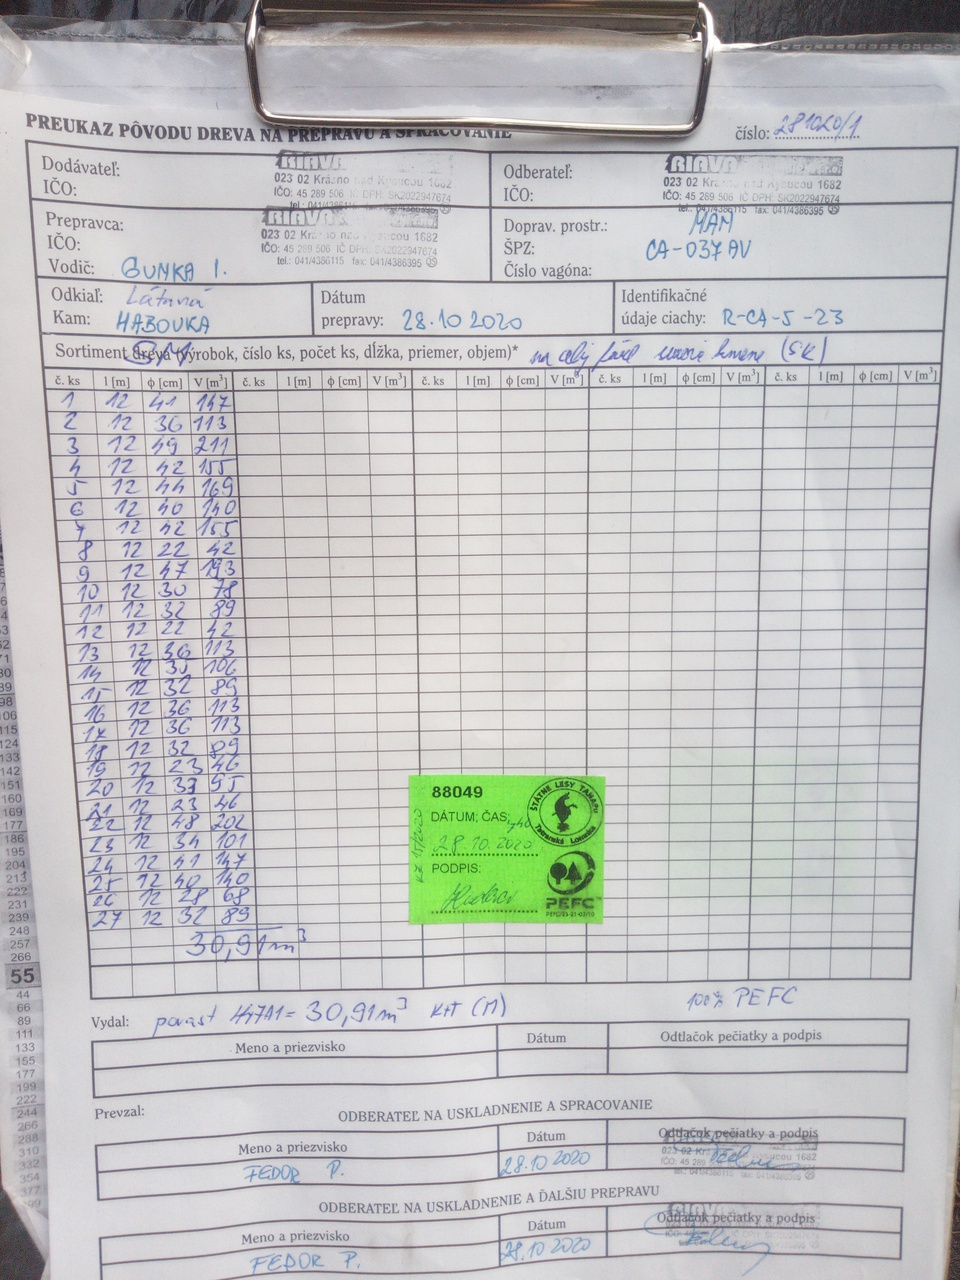 PREUKAZ PÔVODU DREVA NA PREPRAVU A SPRACOVANIE
číslo: 281020/1
Dodávateľ:
IČO:
023 02 Krásno nad Kysucou 1682
IČO: 45 289 506 IČ DPH: SK2022947674
tel.: 041/4386115 fax: 041/4386395
Odberateľ:
IČO:
023 02 Krásno nad Kysucou 1682
IČO: 45 289 506 IČ DPH: SK2022947674
tel.: 041/4386115 fax: 041/4386395
Prepravca:
IČO:
Vodič: GUNKA I.
023 02 Krásno nad Kysucou 1682
IČO: 45 289 506 IČ DPH: SK2022947674
tel.: 041/4386115 fax: 041/4386395
Doprav. prostr.: MAN
ŠPZ: CA-037AV
Číslo vagóna:
Odkiaľ: Látaná
Kam: HABOVKA
Dátum
prepravy: 28.10 2020
Identifikačné
údaje ciachy: R-CA-5-23
SM
Sortiment dreva (výrobok, číslo ks, počet ks, dĺžka, priemer, objem)* na celý (SK)
č. ks l [m] ϕ [cm] V [m³] č. ks l [m] ϕ [cm] V [m³] č. ks l [m] ϕ [cm] V [m³] č. ks l [m] ϕ [cm] V [m³] č. ks l [m] ϕ [cm] V [m³]
1 12 41 147
2 12 36 113
3 12 49 211
4 12 42 155
5 12 44 169
6 12 40 140
7 12 42 155
8 12 22 42
9 12 47 193
10 12 30 78
11 12 32 89
12 12 22 42
13 12 36 113
14 12 35 106
15 12 32 89
16 12 36 113
17 12 36 113
18 12 32 89
19 12 23 46
20 12 33 95
21 12 23 46
22 12 48 202
23 12 34 101
24 12 41 147
25 12 40 140
26 12 28 68
27 12 32 89
30,91m³
88049
DÁTUM; ČAS:
28.10.2020
PODPIS:
ŠTÁTNE LESY TANAPu
Tatranská Lomnica
PEFC
Vydal: porast 447A1 = 30,91m³ (M)
100% PEFC
Meno a priezvisko Dátum Odtlačok pečiatky a podpis
Prevzal:
ODBERATEĽ NA USKLADNENIE A SPRACOVANIE
Meno a priezvisko Dátum Odtlačok pečiatky a podpis
FEDOR P. 28.10 2020
ODBERATEĽ NA USKLADNENIE A ĎALŠIU PREPRAVU
Meno a priezvisko Dátum Odtlačok pečiatky a podpis
FEDOR P. 28.10 2020
248
257
266
55
44
66
89
111
133
155
177
199
222
244
266
288
310
332
354
377